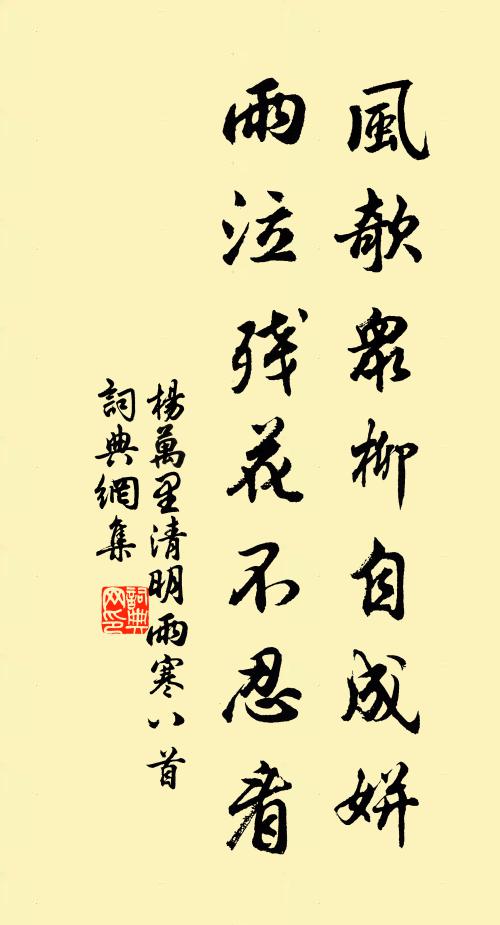 風欹眾柳自成妍
雨泣残花不忍看
楊萬里清明雨寒八首
詞典網集
詞典
网印